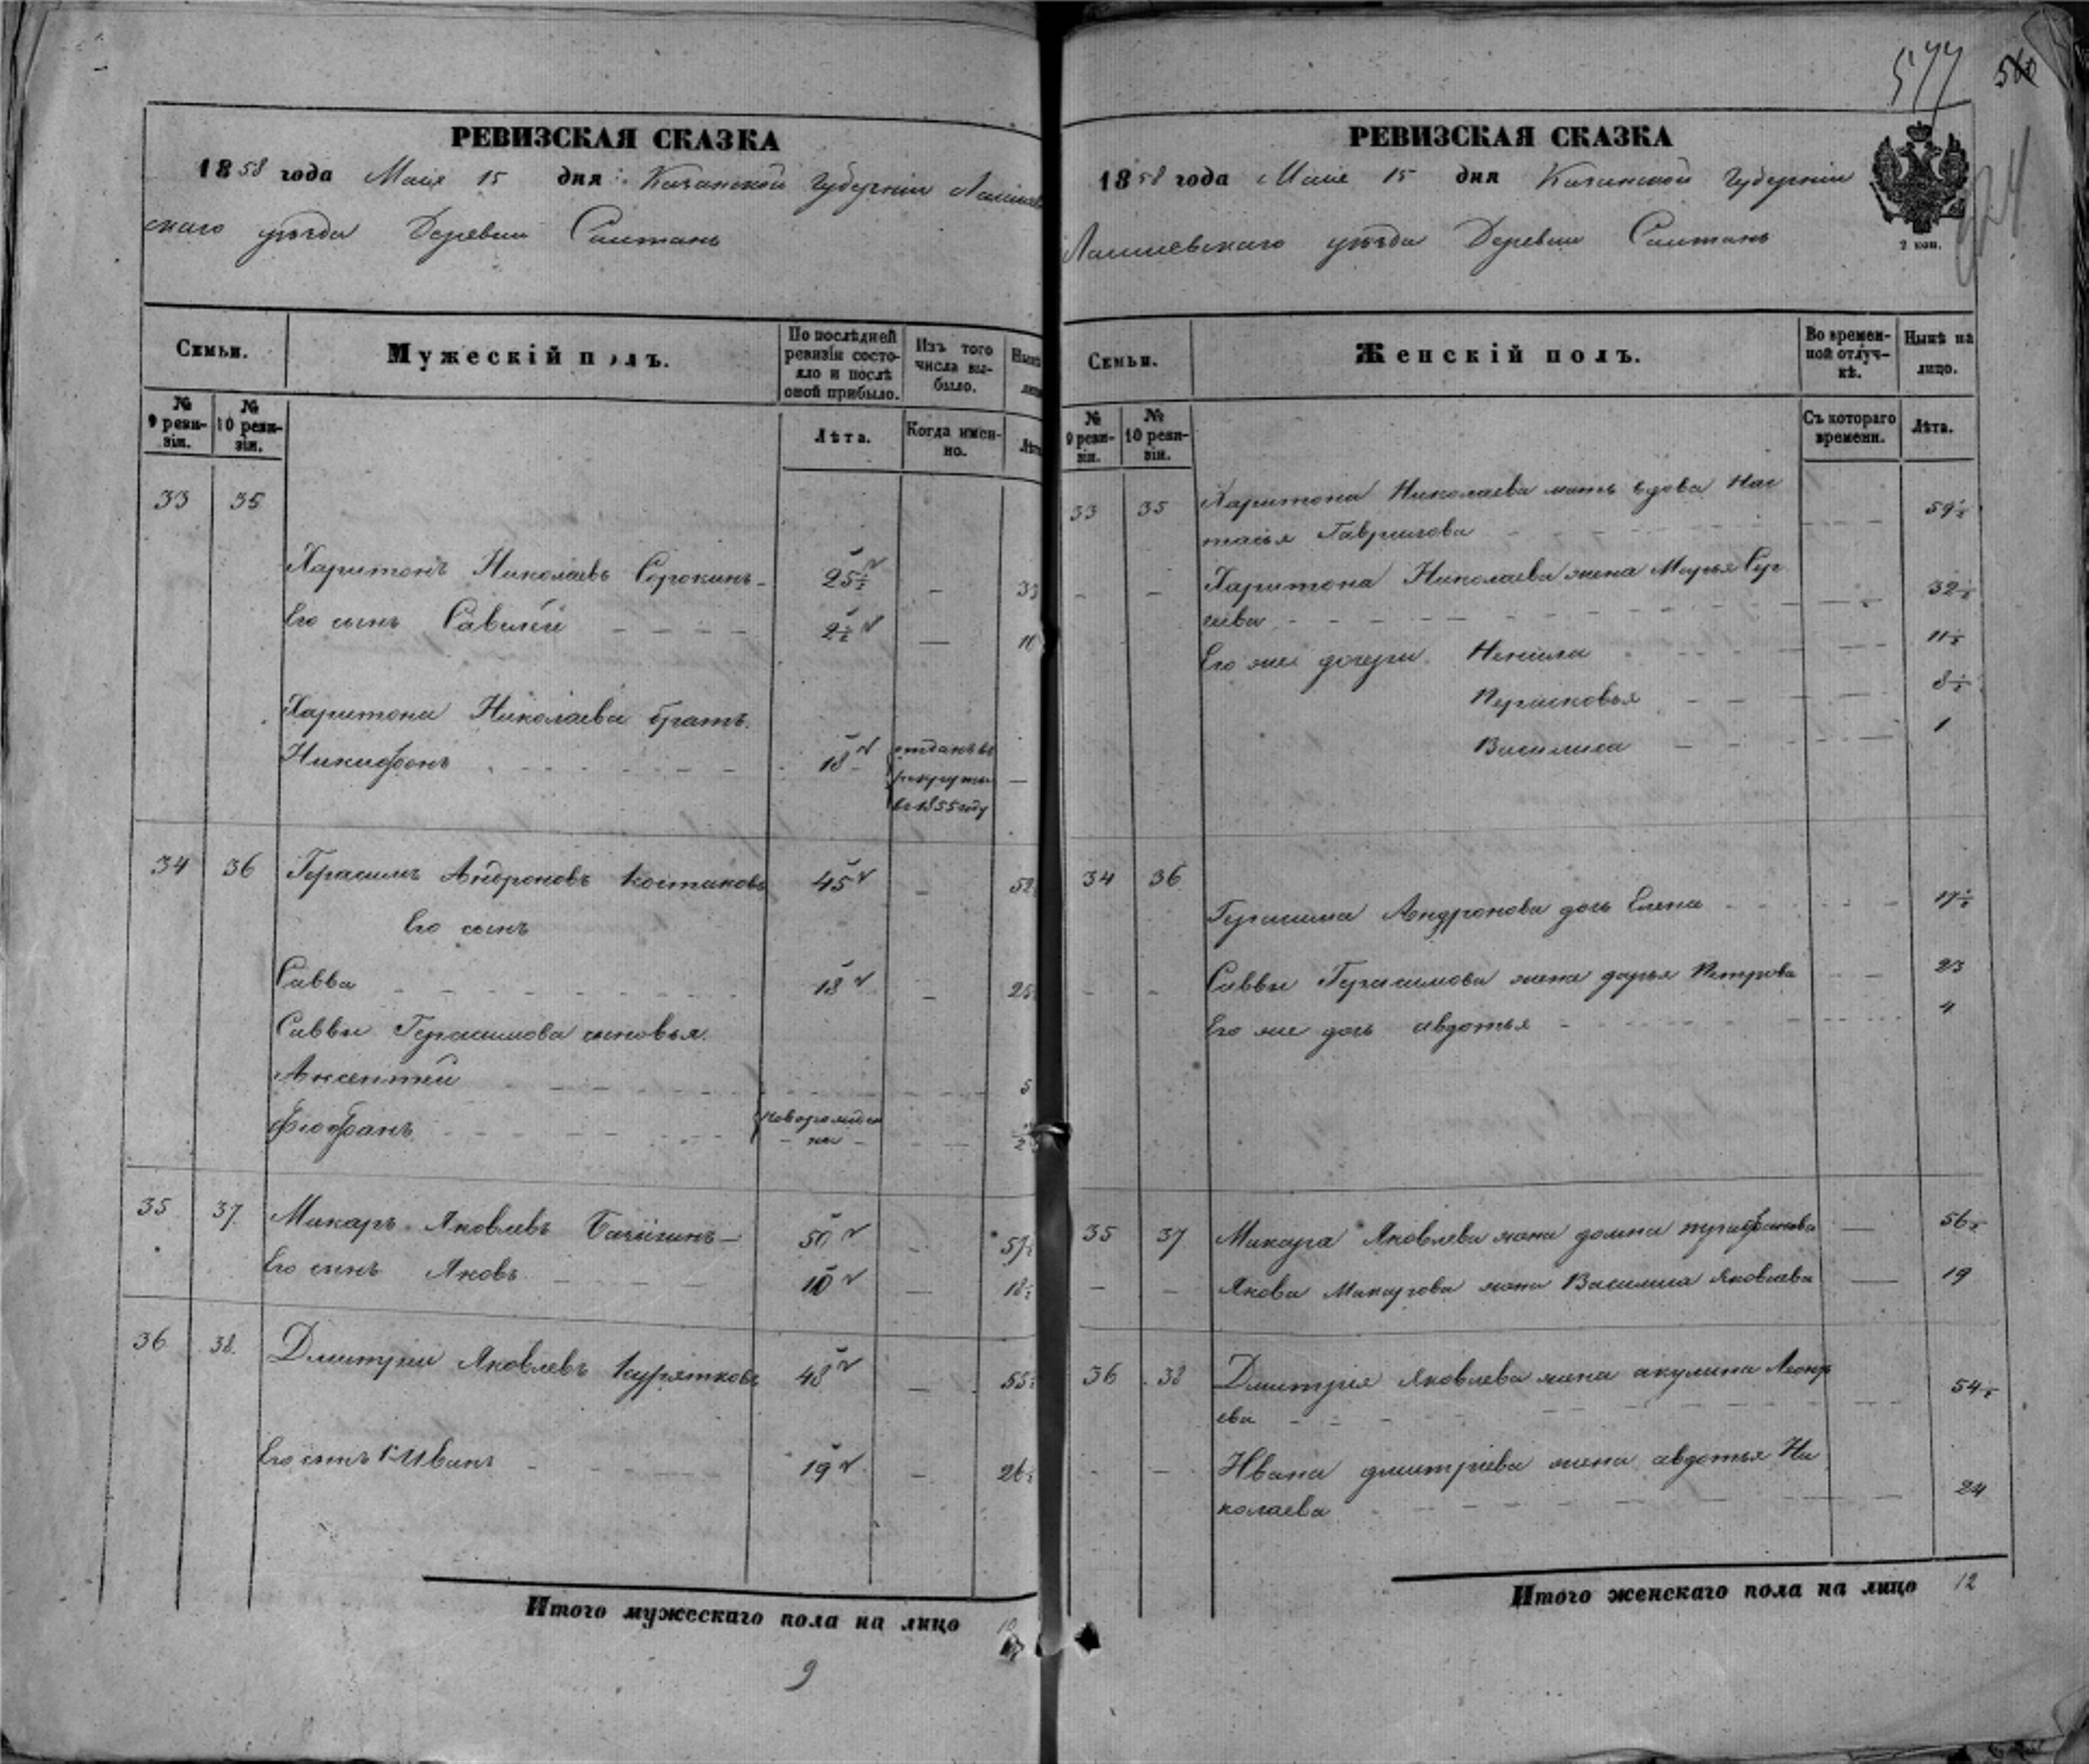 РЕВИЗСКАЯ СКАЗКА
1858 года Маія 15 дня Казанской Губерніи Лаишев
скаго уѣзда Деревни Саитань
Семьи.
Мужескій полъ.
По послѣдней ревизіи состояло и послѣ оной прибыло.
Изъ того числа выбыло.
Нынѣ
лицо
№ 9 ревизіи.
№ 10 ревизіи.
Лѣта.
Когда именно.
Лѣта
33 35
Харитонъ Николаевъ Сорокинъ 25½ — 33
Его сынъ Савелей 2½ — 10
Харитона Николаева братъ
Никифоръ 18 отданъ въ рекруты въ 1855 году —
34 36 Герасимъ Андроновъ Костинъ 45 — 52
Его сынъ
Савва 18 — 25
Саввы Герасимова сыновья
Аксентей 5
Феофанъ новорожден ные ½
35 37 Макаръ Яковлевъ 50 — 57½
Его сынъ Яковъ 10 — 18½
36 38 Дмитрій Яковлевъ Курятковъ 48 — 55½
Его сынъ Иванъ 19 — 26½
Итого мужескаго пола на лицо
9
577
560
РЕВИЗСКАЯ СКАЗКА
1858 года Маія 15 дня Казанской Губерніи
Лаишевскаго уѣзда Деревни Саитань
2 коп.
Семьи.
Женскій полъ.
Во временной отлучкѣ.
Нынѣ на лицо.
№ 9 ревизіи.
№ 10 ревизіи.
Съ котораго времени.
Лѣта.
33 35 Харитона Николаева мать вдова Нас
тасья Гаврилова — 59½
Харитона Николаева жена Марья Сер
гѣева — 32½
Его же дочери Ненила — 11½
Перасковья — 8½
Василиса — 1
34 36
Герасима Андронова дочь Елена 17½
Саввы Герасимова жена дарья Петрова — 23
Его же дочь авдотья 4
35 37 Макара Яковлева жена домна — 56½
Якова Макарова жена Василиса Яковлева — 19
36 38 Дмитрія Яковлева жена акулина
ева — 54½
Ивана дмитріева жена авдотья Ни
колаева — 24
Итого женскаго пола на лицо 12